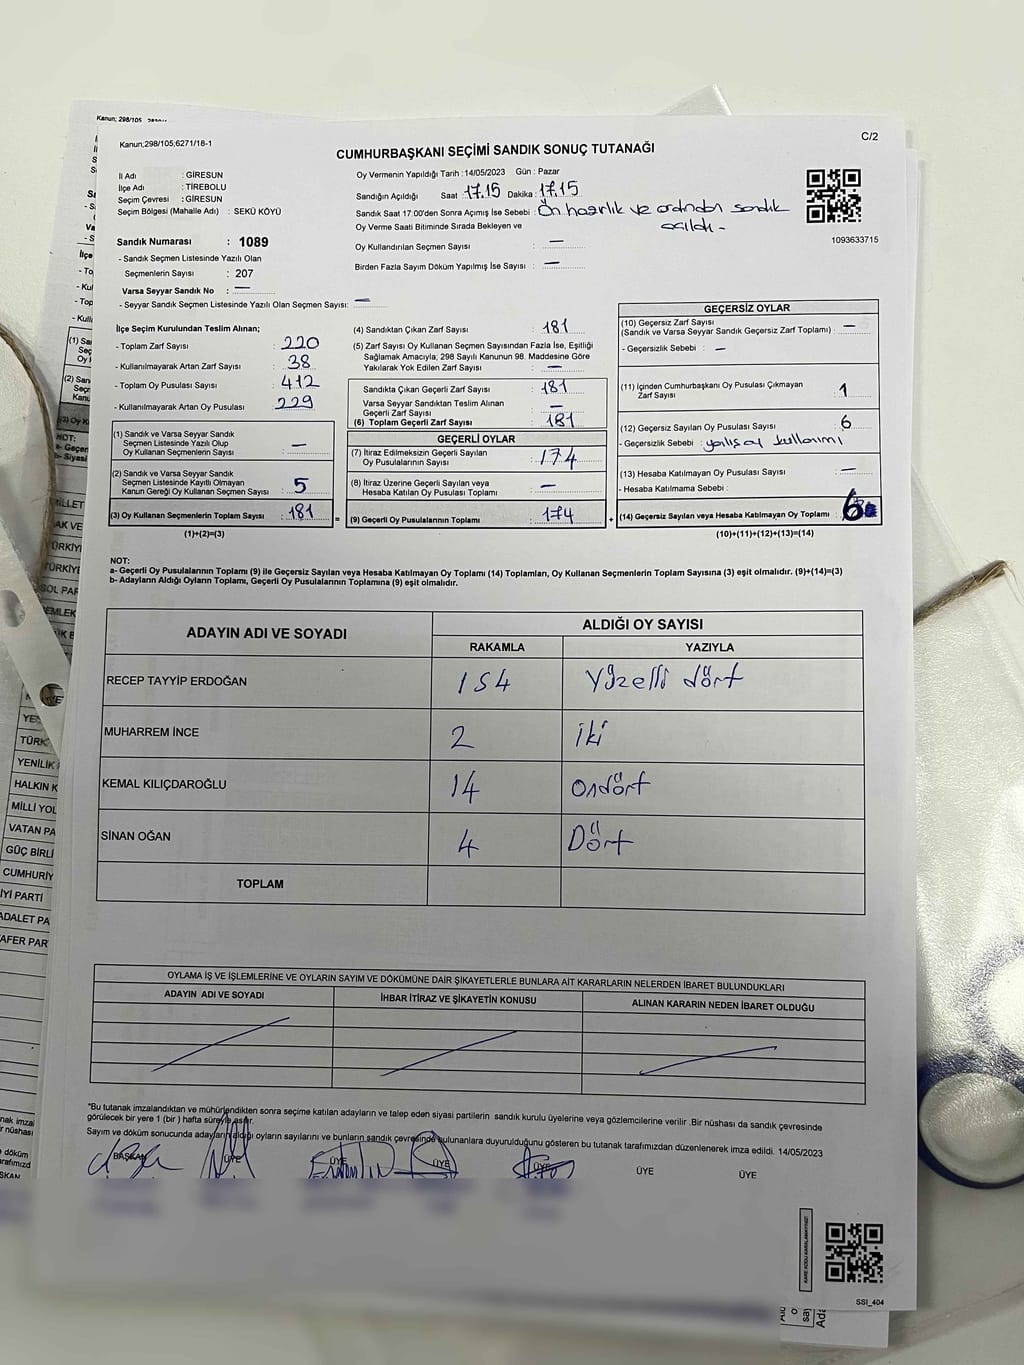 Kanun; 298/105
Kanun;298/105,6271/18-1
C/2
CUMHURBAŞKANI SEÇİMİ SANDIK SONUÇ TUTANAĞI
İl Adı : GİRESUN
İlçe Adı : TİREBOLU
Seçim Çevresi : GİRESUN
Seçim Bölgesi (Mahalle Adı) : SEKÜ KÖYÜ
Oy Vermenin Yapıldığı Tarih :14/05/2023 Gün : Pazar
Sandığın Açıldığı Saat 17.15 Dakika : 17.15
Sandık Saat 17:00'den Sonra Açımış İse Sebebi : Ön hazırlık ve ardından sandık
açıldı.
Oy Verme Saati Bitiminde Sırada Bekleyen ve
Oy Kullandırılan Seçmen Sayısı : —
Birden Fazla Sayım Döküm Yapılmış İse Sayısı : —
1093633715
Sandık Numarası : 1089
- Sandık Seçmen Listesinde Yazılı Olan
Seçmenlerin Sayısı : 207
Varsa Seyyar Sandık No : —
- Seyyar Sandık Seçmen Listesinde Yazılı Olan Seçmen Sayısı: —
İlçe Seçim Kurulundan Teslim Alınan;
- Toplam Zarf Sayısı : 220
- Kullanılmayarak Artan Zarf Sayısı : 38
- Toplam Oy Pusulası Sayısı : 412
- Kullanılmayarak Artan Oy Pusulası : 229
(1) Sandık ve Varsa Seyyar Sandık
Seçmen Listesinde Yazılı Olup
Oy Kullanan Seçmenlerin Sayısı : —
(2) Sandık ve Varsa Seyyar Sandık
Seçmen Listesinde Kayıtlı Olmayan
Kanun Gereği Oy Kullanan Seçmen Sayısı : 5
(3) Oy Kullanan Seçmenlerin Toplam Sayısı : 181
(1)+(2)=(3)
(4) Sandıktan Çıkan Zarf Sayısı : 181
(5) Zarf Sayısı Oy Kullanan Seçmen Sayısından Fazla İse, Eşitliği
Sağlamak Amacıyla, 298 Sayılı Kanunun 98. Maddesine Göre
Yakılarak Yok Edilen Zarf Sayısı : —
Sandıkta Çıkan Geçerli Zarf Sayısı : 181
Varsa Seyyar Sandıktan Teslim Alınan
Geçerli Zarf Sayısı : —
(6) Toplam Geçerli Zarf Sayısı : 181
GEÇERLİ OYLAR
(7) İtiraz Edilmeksizin Geçerli Sayılan
Oy Pusulalarının Sayısı : 174
(8) İtiraz Üzerine Geçerli Sayılan veya
Hesaba Katılan Oy Pusulası Toplamı : —
= (9) Geçerli Oy Pusulalarının Toplamı : 174
GEÇERSİZ OYLAR
(10) Geçersiz Zarf Sayısı
(Sandık ve Varsa Seyyar Sandık Geçersiz Zarf Toplamı) : —
- Geçersizlik Sebebi : —
(11) İçinden Cumhurbaşkanı Oy Pusulası Çıkmayan
Zarf Sayısı : 1
(12) Geçersiz Sayılan Oy Pusulası Sayısı : 6
- Geçersizlik Sebebi : yanlış oy kullanımı
(13) Hesaba Katılmayan Oy Pusulası Sayısı : —
- Hesaba Katılmama Sebebi :
+ (14) Geçersiz Sayılan veya Hesaba Katılmayan Oy Toplamı : 6
(10)+(11)+(12)+(13)=(14)
NOT:
a- Geçerli Oy Pusulalarının Toplamı (9) ile Geçersiz Sayılan veya Hesaba Katılmayan Oy Toplamı (14) Toplamları, Oy Kullanan Seçmenlerin Toplam Sayısına (3) eşit olmalıdır. (9)+(14)=(3)
b- Adayların Aldığı Oyların Toplamı, Geçerli Oy Pusulalarının Toplamına (9) eşit olmalıdır.
ADAYIN ADI VE SOYADI
ALDIĞI OY SAYISI
RAKAMLA YAZIYLA
RECEP TAYYİP ERDOĞAN 154 Yüzelli dört
MUHARREM İNCE 2 iki
KEMAL KILIÇDAROĞLU 14 Ondört
SİNAN OĞAN 4 Dört
TOPLAM
OYLAMA İŞ VE İŞLEMLERİNE VE OYLARIN SAYIM VE DÖKÜMÜNE DAİR ŞİKAYETLERLE BUNLARA AİT KARARLARIN NELERDEN İBARET BULUNDUKLARI
ADAYIN ADI VE SOYADI İHBAR İTİRAZ VE ŞİKAYETİN KONUSU ALINAN KARARIN NEDEN İBARET OLDUĞU
*Bu tutanak imzalandıktan ve mühürlendikten sonra seçime katılan adayların ve talep eden siyasi partilerin sandık kurulu üyelerine veya gözlemcilerine verilir .Bir nüshası da sandık çevresinde
görülecek bir yere 1 (bir ) hafta süreyle asılır.
Sayım ve döküm sonucunda adayların aldığı oyların sayılarını ve bunların sandık çevresinde bulunanlara duyurulduğunu gösteren bu tutanak tarafımızdan düzenlenerek imza edildi. 14/05/2023
BAŞKAN ÜYE ÜYE ÜYE ÜYE ÜYE ÜYE
SSI_404
MİLLET
AK VE
TÜRKİY
TÜRKİYE
SOL PAR
EMLEK
YE
TÜRK
YENİLİK
HALKIN K
MİLLİ YOL
VATAN PA
GÜÇ BİRLİ
CUMHURİY
İYİ PARTİ
ADALET PA
AFER PAR